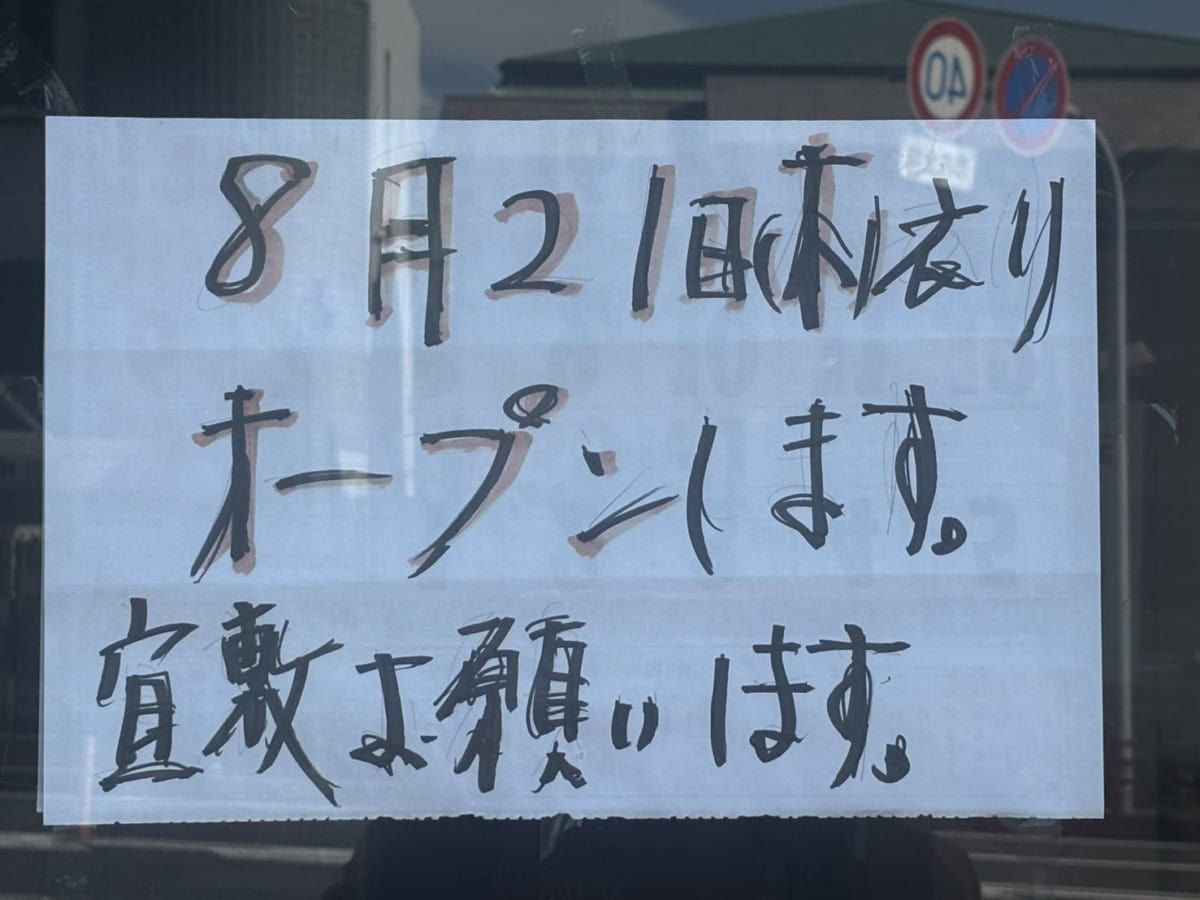 8月21日(木)より
オープンします。
宜敷お願いします。
40